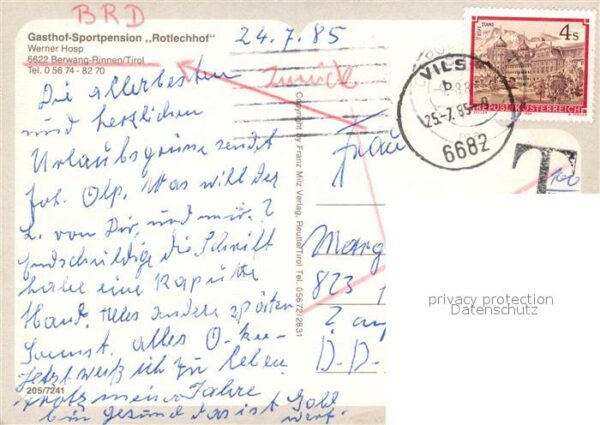 BRD
Gasthof-Sportpension „Rotlechhof"
Werner Hosp
6622 Berwang-Rinnen/Tirol
Tel. 0 56 74 - 82 70
24.7.85
Zurück
Die allerbesten
und herzlichen
Urlaubsgrüsse sendet
Joh. Olp. Was will der
L. von Dir, und mir?
Entschuldige die Schrift
habe eine kaputte
Hand. alles andere später
Sonnst. alles O-kee-
Jetzt weiß ich zu leben
trotz meiner Jahre
bin gesund das ist Gold
wert.
205/7241
Copyright by Franz Milz Verlag, Reutte/Tirol Tel. 05672/2831
4 S
STIFT STAMS
REPUBLIK ÖSTERREICH
VILS
b
25.-7.85
6682
T
Frau
Marg
823
D-D-
privacy protection
Datenschutz